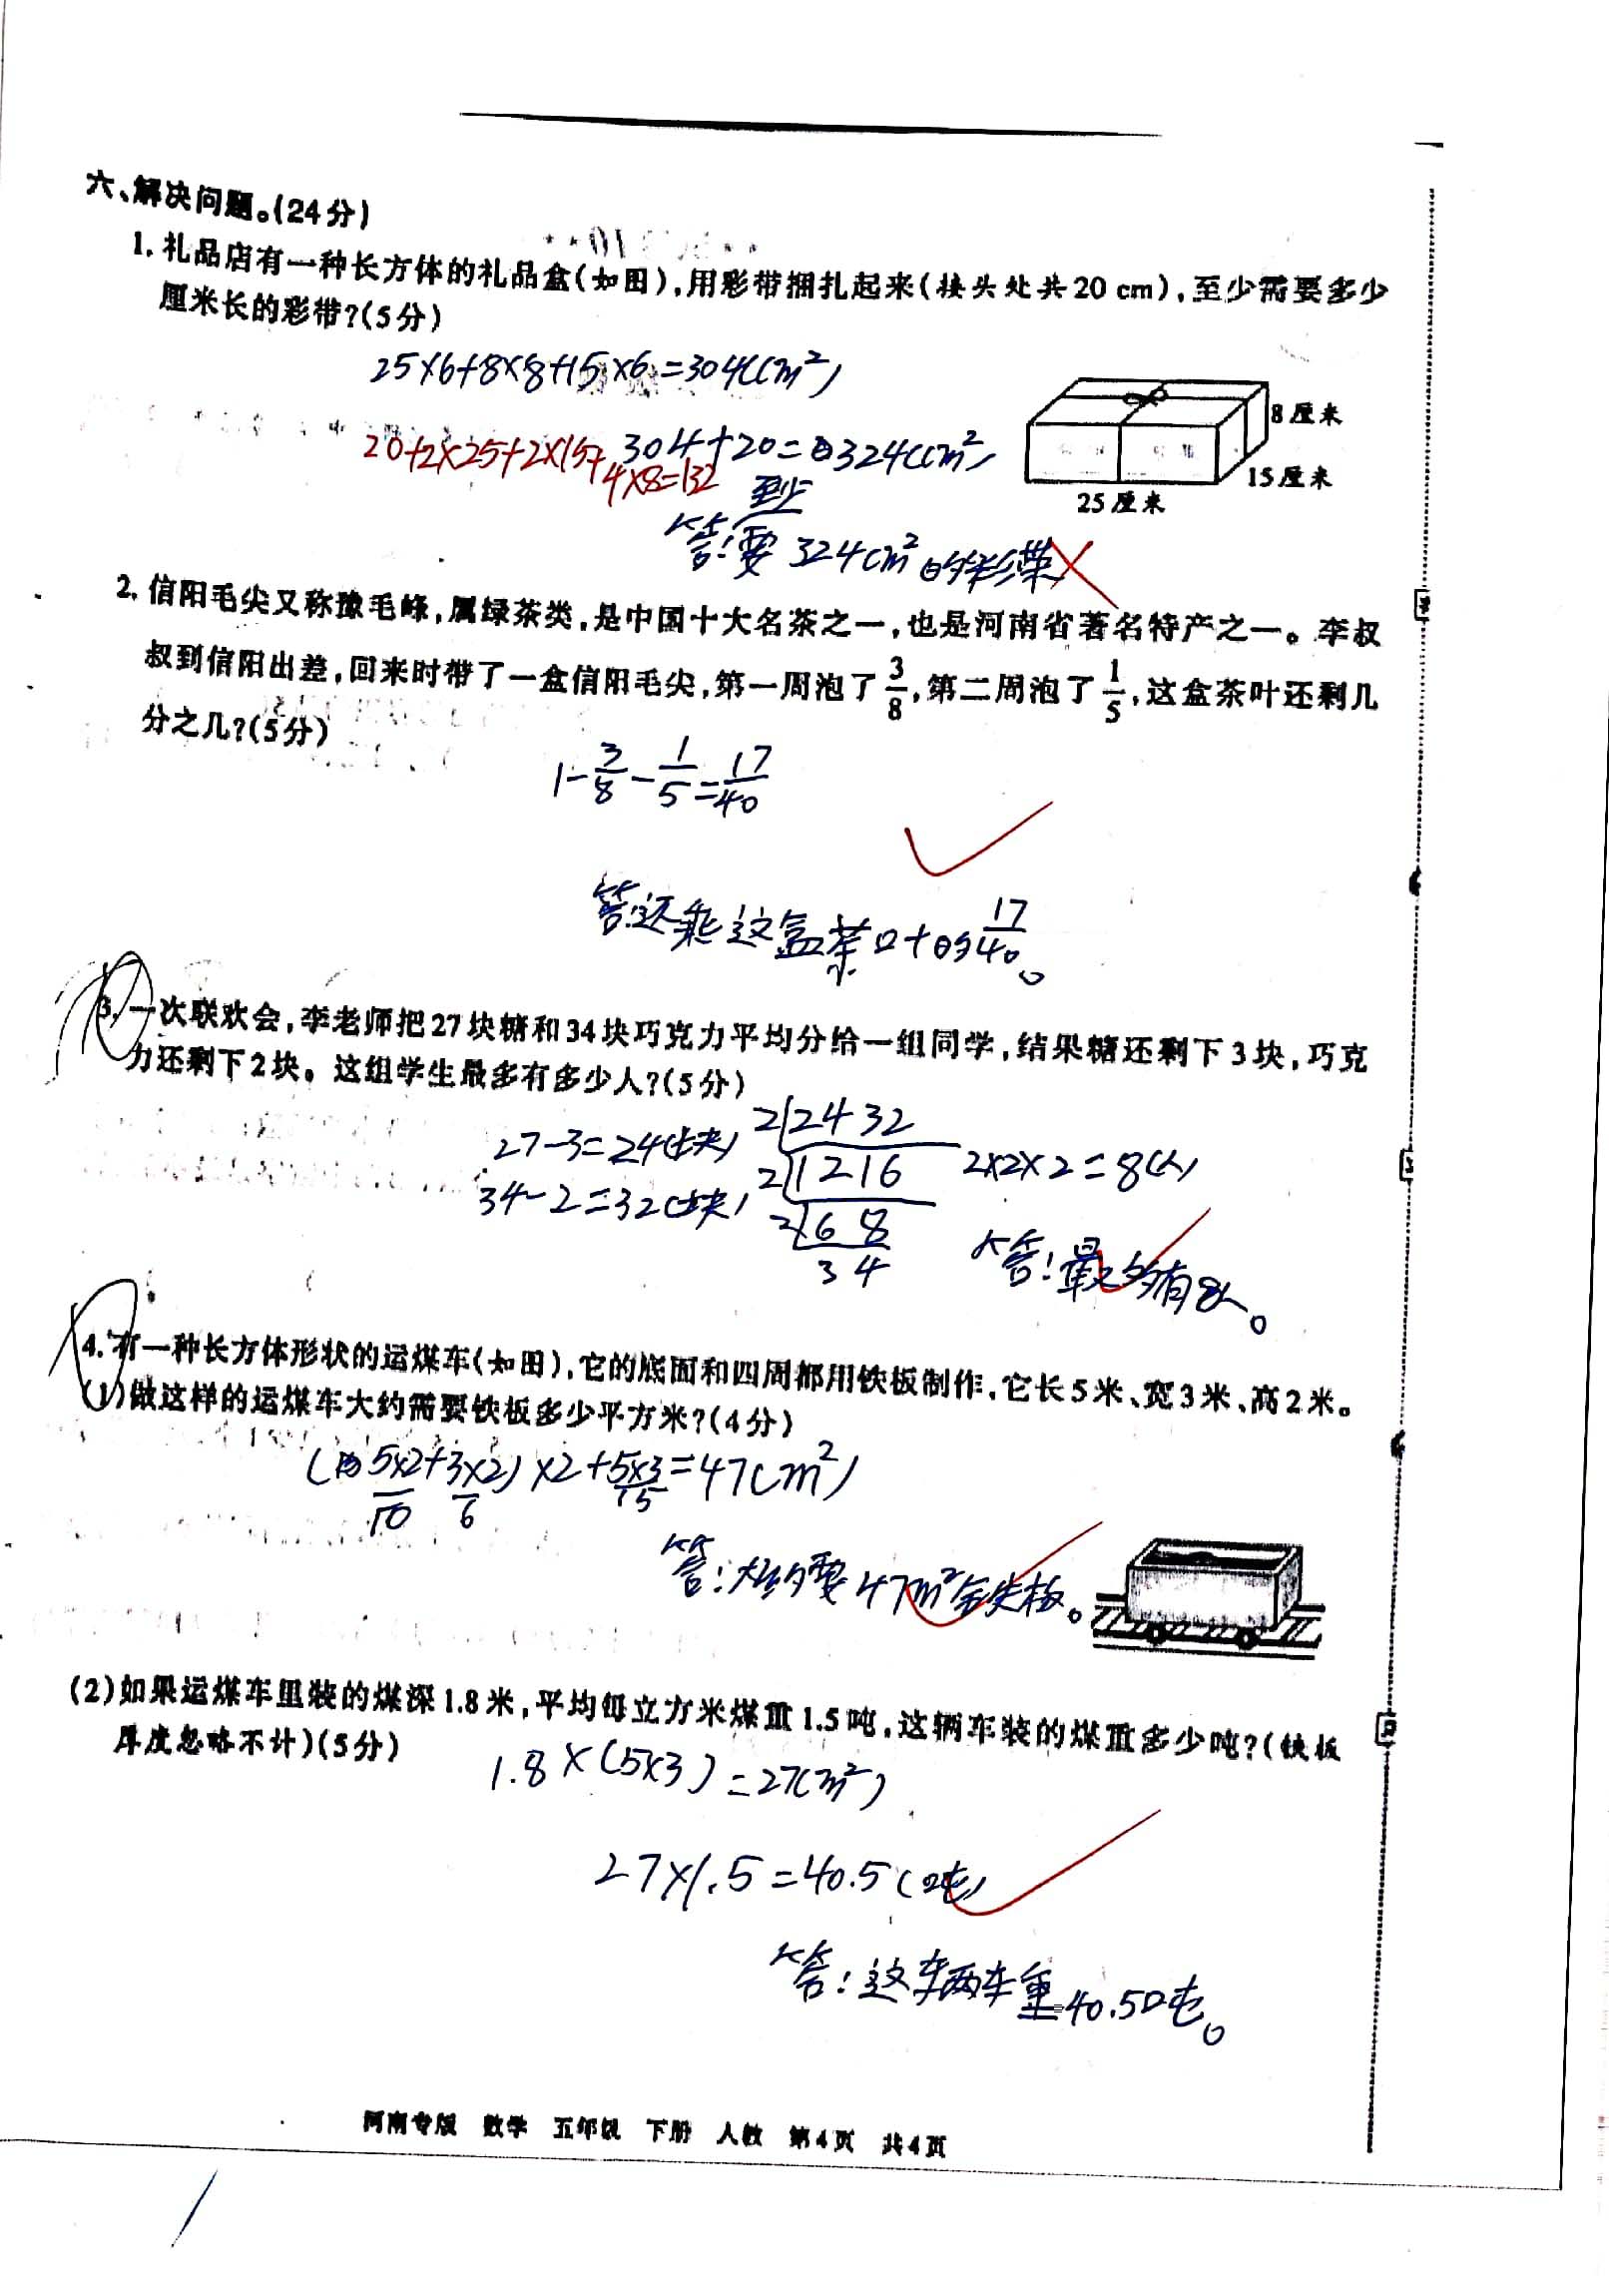 六、解决问题。(24分)
1. 礼品店有一种长方体的礼品盒(如图),用彩带捆扎起来(接头处共20 cm),至少需要多少
厘米长的彩带?(5分)
25×6+8×8+15×6=304(cm²)
20+2×25+2×15+4×8=132
304+20=324(cm²)
8厘米
15厘米
25厘米
至少
答:要324cm²的彩带
2. 信阳毛尖又称豫毛峰,属绿茶类,是中国十大名茶之一,也是河南省著名特产之一。李叔
叔到信阳出差,回来时带了一盒信阳毛尖,第一周泡了3/8,第二周泡了1/5,这盒茶叶还剩几
分之几?(5分)
1-3/8-1/5=17/40
答:还剩这盒茶叶的17/40。
3. 一次联欢会,李老师把27块糖和34块巧克力平均分给一组同学,结果糖还剩下3块,巧克
力还剩下2块。这组学生最多有多少人?(5分)
27-3=24(块)
34-2=32(块)
2 24 32
2 12 16
2 6 8
3 4
2×2×2=8(人)
答:最多有8人。
4. 有一种长方体形状的运煤车(如图),它的底面和四周都用铁板制作,它长5米、宽3米、高2米。
(1)做这样的运煤车大约需要铁板多少平方米?(4分)
(5×2+3×2)×2+5×3=47(m²)
10 6 15
答:大约要47m²铁板。
(2)如果运煤车里装的煤深1.8米,平均每立方米煤重1.5吨,这辆车装的煤重多少吨?(铁板
厚度忽略不计)(5分)
1.8×(5×3)=27(m²)
27×1.5=40.5(吨)
答:这辆车重40.5吨。
河南专版 数学 五年级 下册 人教 第4页 共4页